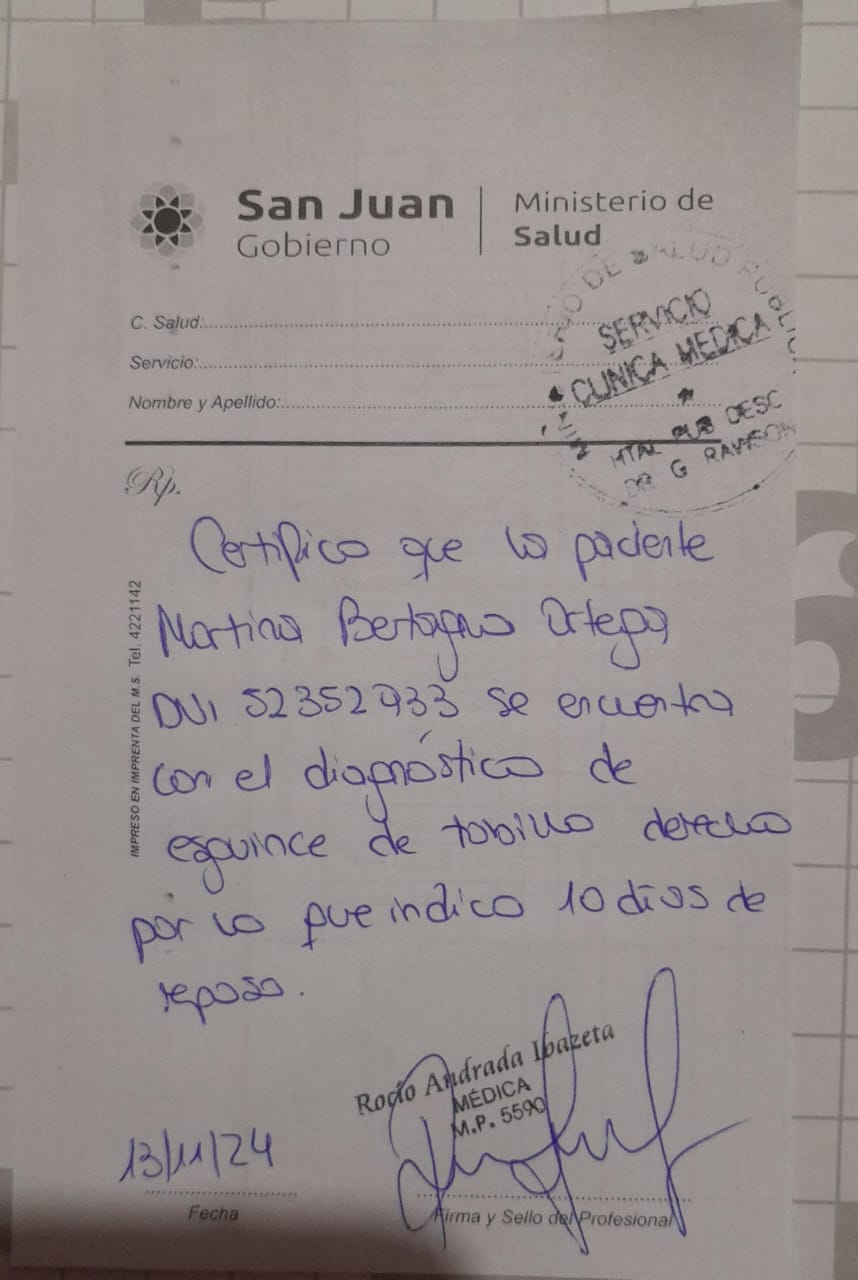 San Juan
Gobierno
Ministerio de
Salud
C. Salud:
Servicio:
Nombre y Apellido:
SERVICIO
CLINICA MEDICA
HTAL PUB DESC
DR G RAWSON
Rp.
Certifico que la paciente
Martina Bertagna Ortega
DNI 52352933 se encuentra
con el diagnóstico de
esguince de tobillo derecho
por lo que indico 10 días de
reposo.
IMPRESO EN IMPRENTA DEL M.S. Tel. 4221142
Rocío Andrada Ibazeta
MÉDICA
M.P. 5590
13/11/24
Fecha
Firma y Sello del Profesional